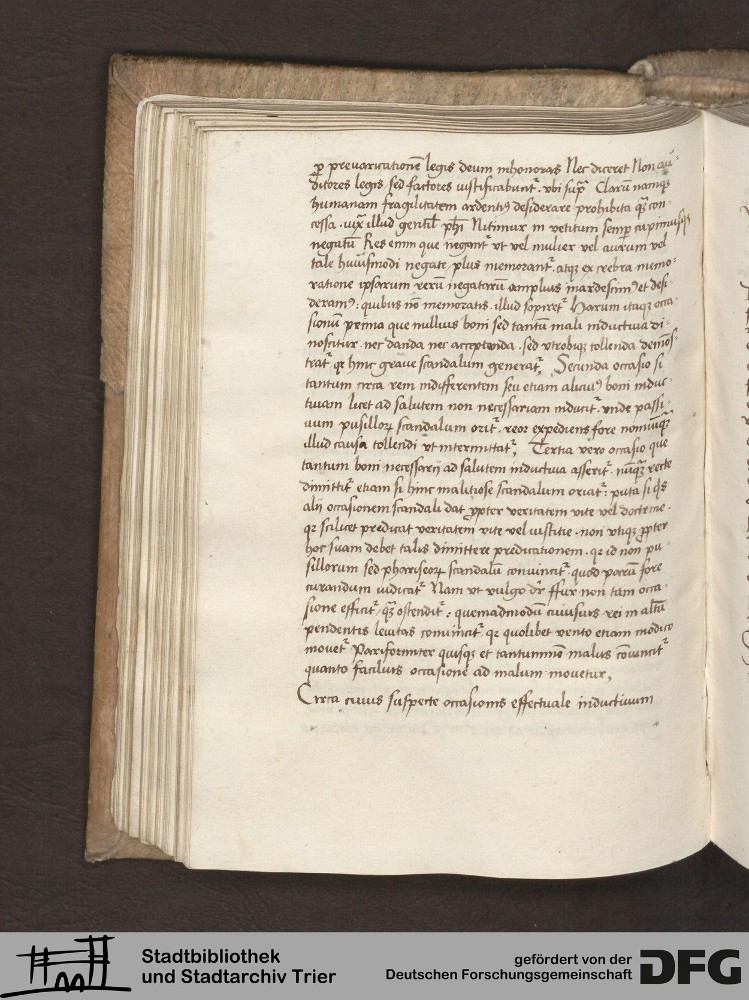 p̲ prevaricationē legis deum inhonoras Nec diceret Non au⸗
ditores legis sed factores iustificabunt᷑ . vbi sup̄ Clarū namqꝫ
humanam fragilitatem ardentiꝰ desiderare prohibita qꝫ con⸗
cessa . iuxͣ illud gentil̄ ph̄i Nitimur in vetitum semp̲ cupimusqꝫ
negatū Res enim que negant᷑ vt vel mulier vel aurum vel
tale huiusmodi negate plus memorant᷑ . atqꝫ ex crebra memo⸗
ratione ipsarum rerū negatarū amplius inardescimꝰ et desi⸗
deramꝰ : quibus nō memoratis . illud sopiret᷑ Harum itaqꝫ occa⸗
sionum prima que nullius boni sed tantū mali inductiua di⸗
noscitur . nec danda nec acceptanda . sed vtrobiqꝫ tollenda demōs⸗
trat᷑ qꝛ hinc graue scandalum generat᷑, Secunda occasio si
tantum circa rem indifferentem seu etiam alicuiꝰ boni induc⸗
tiuam licet ad salutem non necessariam inducit᷑ . vnde passi⸗
uum pusilloꝝ scandalum orit᷑ . reor expediens fore nonnūqꝫ
illud causa tollendi vt intermittat᷑, Tertia vero occasio que
tantum boni necessarij ad salutem inductiua asserit᷑ . nūqꝫ recte
dimittit᷑ etiam si hinc malitiose scandalum oriat᷑ : puta si q̄s
alij occasionem scandali dat p̲pter veritatem vite vel doctrine .
qꝛ scilicet predicat veritatem vite vel iustitie . non vtiqꝫ p̲pter
hoc suam debet talis dimittere predicationem . qꝛ id non pu⸗
sillorum sed phariseoꝝ scandalū conuincit᷑ . quod parū fore
curandum iudicat᷑ Nam vt vulgo dr̄ ffur non tam occa⸗
sione efficit᷑ / qꝫ ostendit᷑ : quemadmodū cuiusuis rei in altū
pendentis leuitas conuincit᷑ . qꝛ quolibet vento etiam modico
mouet᷑ Pariformiter quisqꝫ et tantummō malus cōuincit᷑
quanto facilius occasione ad malum mouetur,
Circa cuius suspecte occasionis effectuale inductiuum
Stadtbibliothek
und Stadtarchiv Trier
gefördert von der
Deutschen Forschungsgemeinschaft
DFG